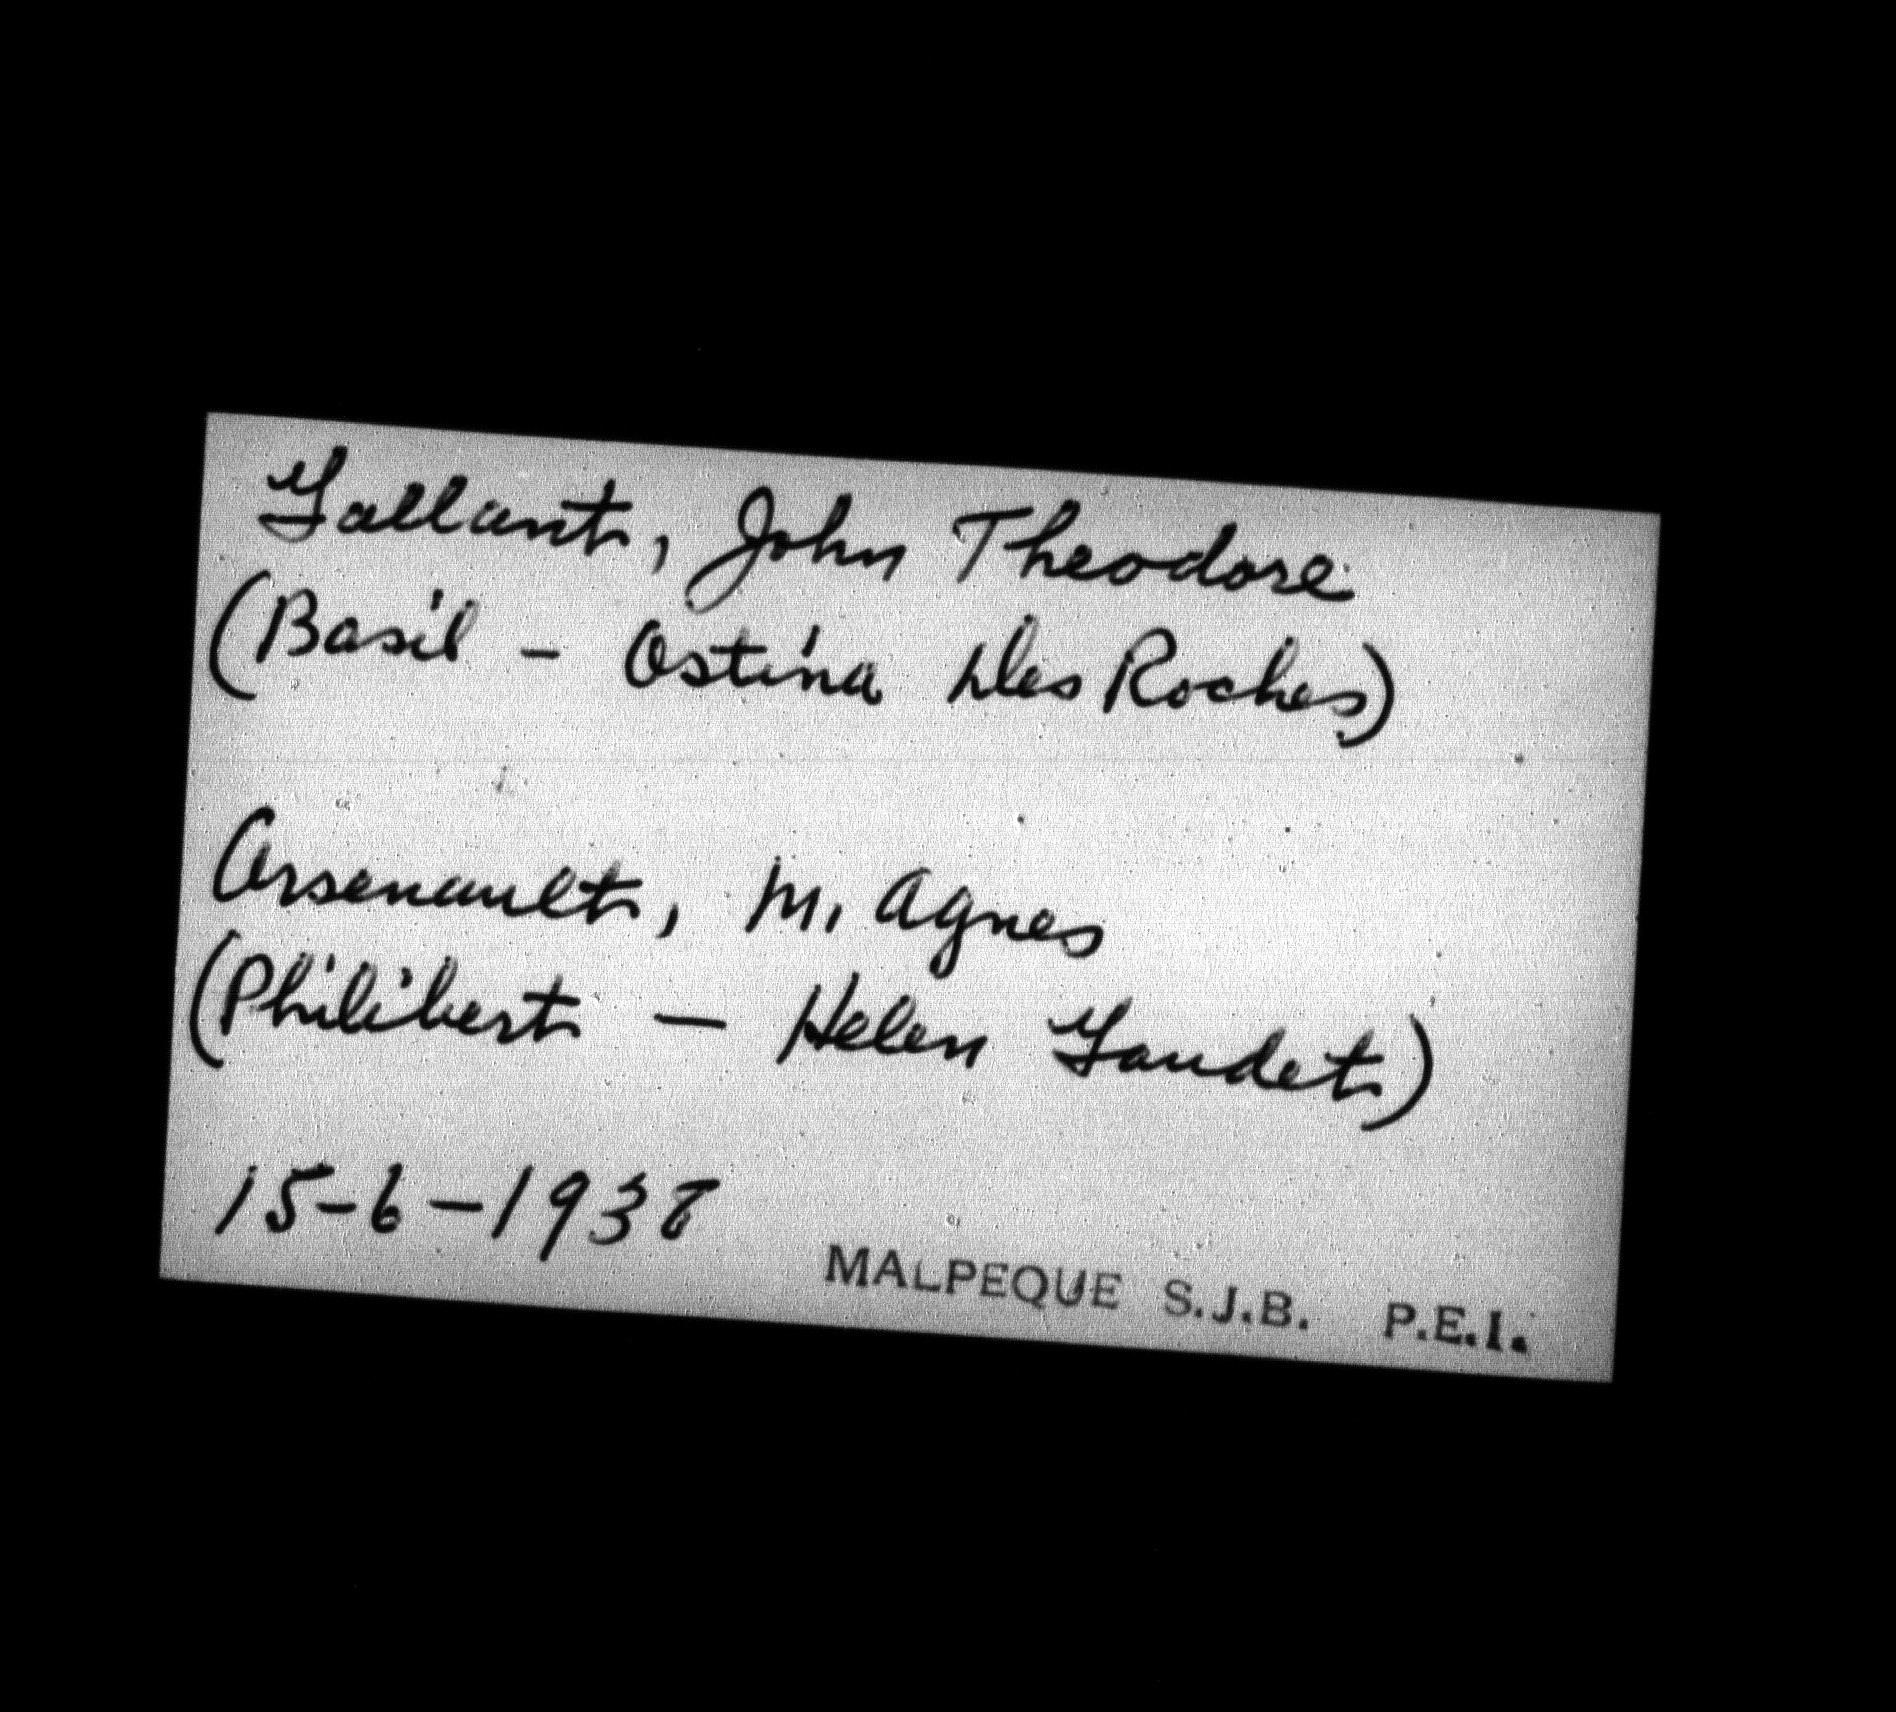 Gallant, John Theodore
(Basil - Ostina DesRoches)
Arsenault, M. Agnes
(Philibert — Helen Gaudet)
15-6-1938
MALPEQUE S.J.B. P.E.I.